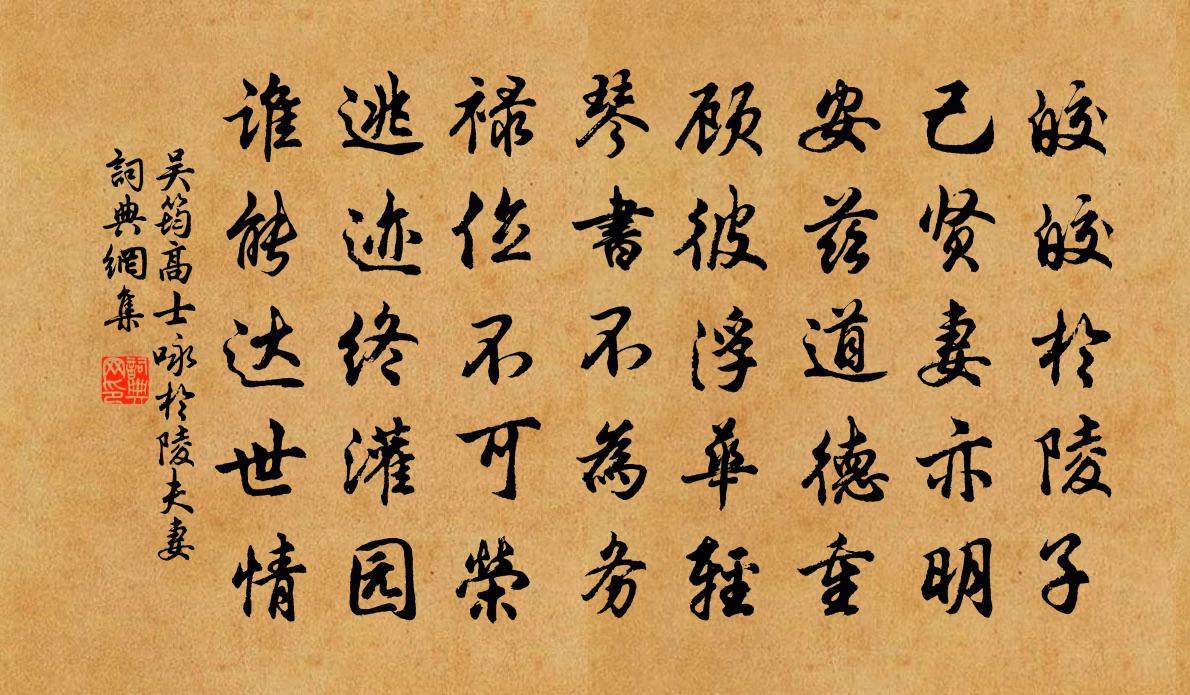 皎皎於陵子
己贤妻亦明
安兹道德重
顾彼浮華輕
琴書不為务
禄位不可榮
逃迹终灌园
谁能达世情
吴筠高士咏於陵夫妻
詞典網集
詞典网印